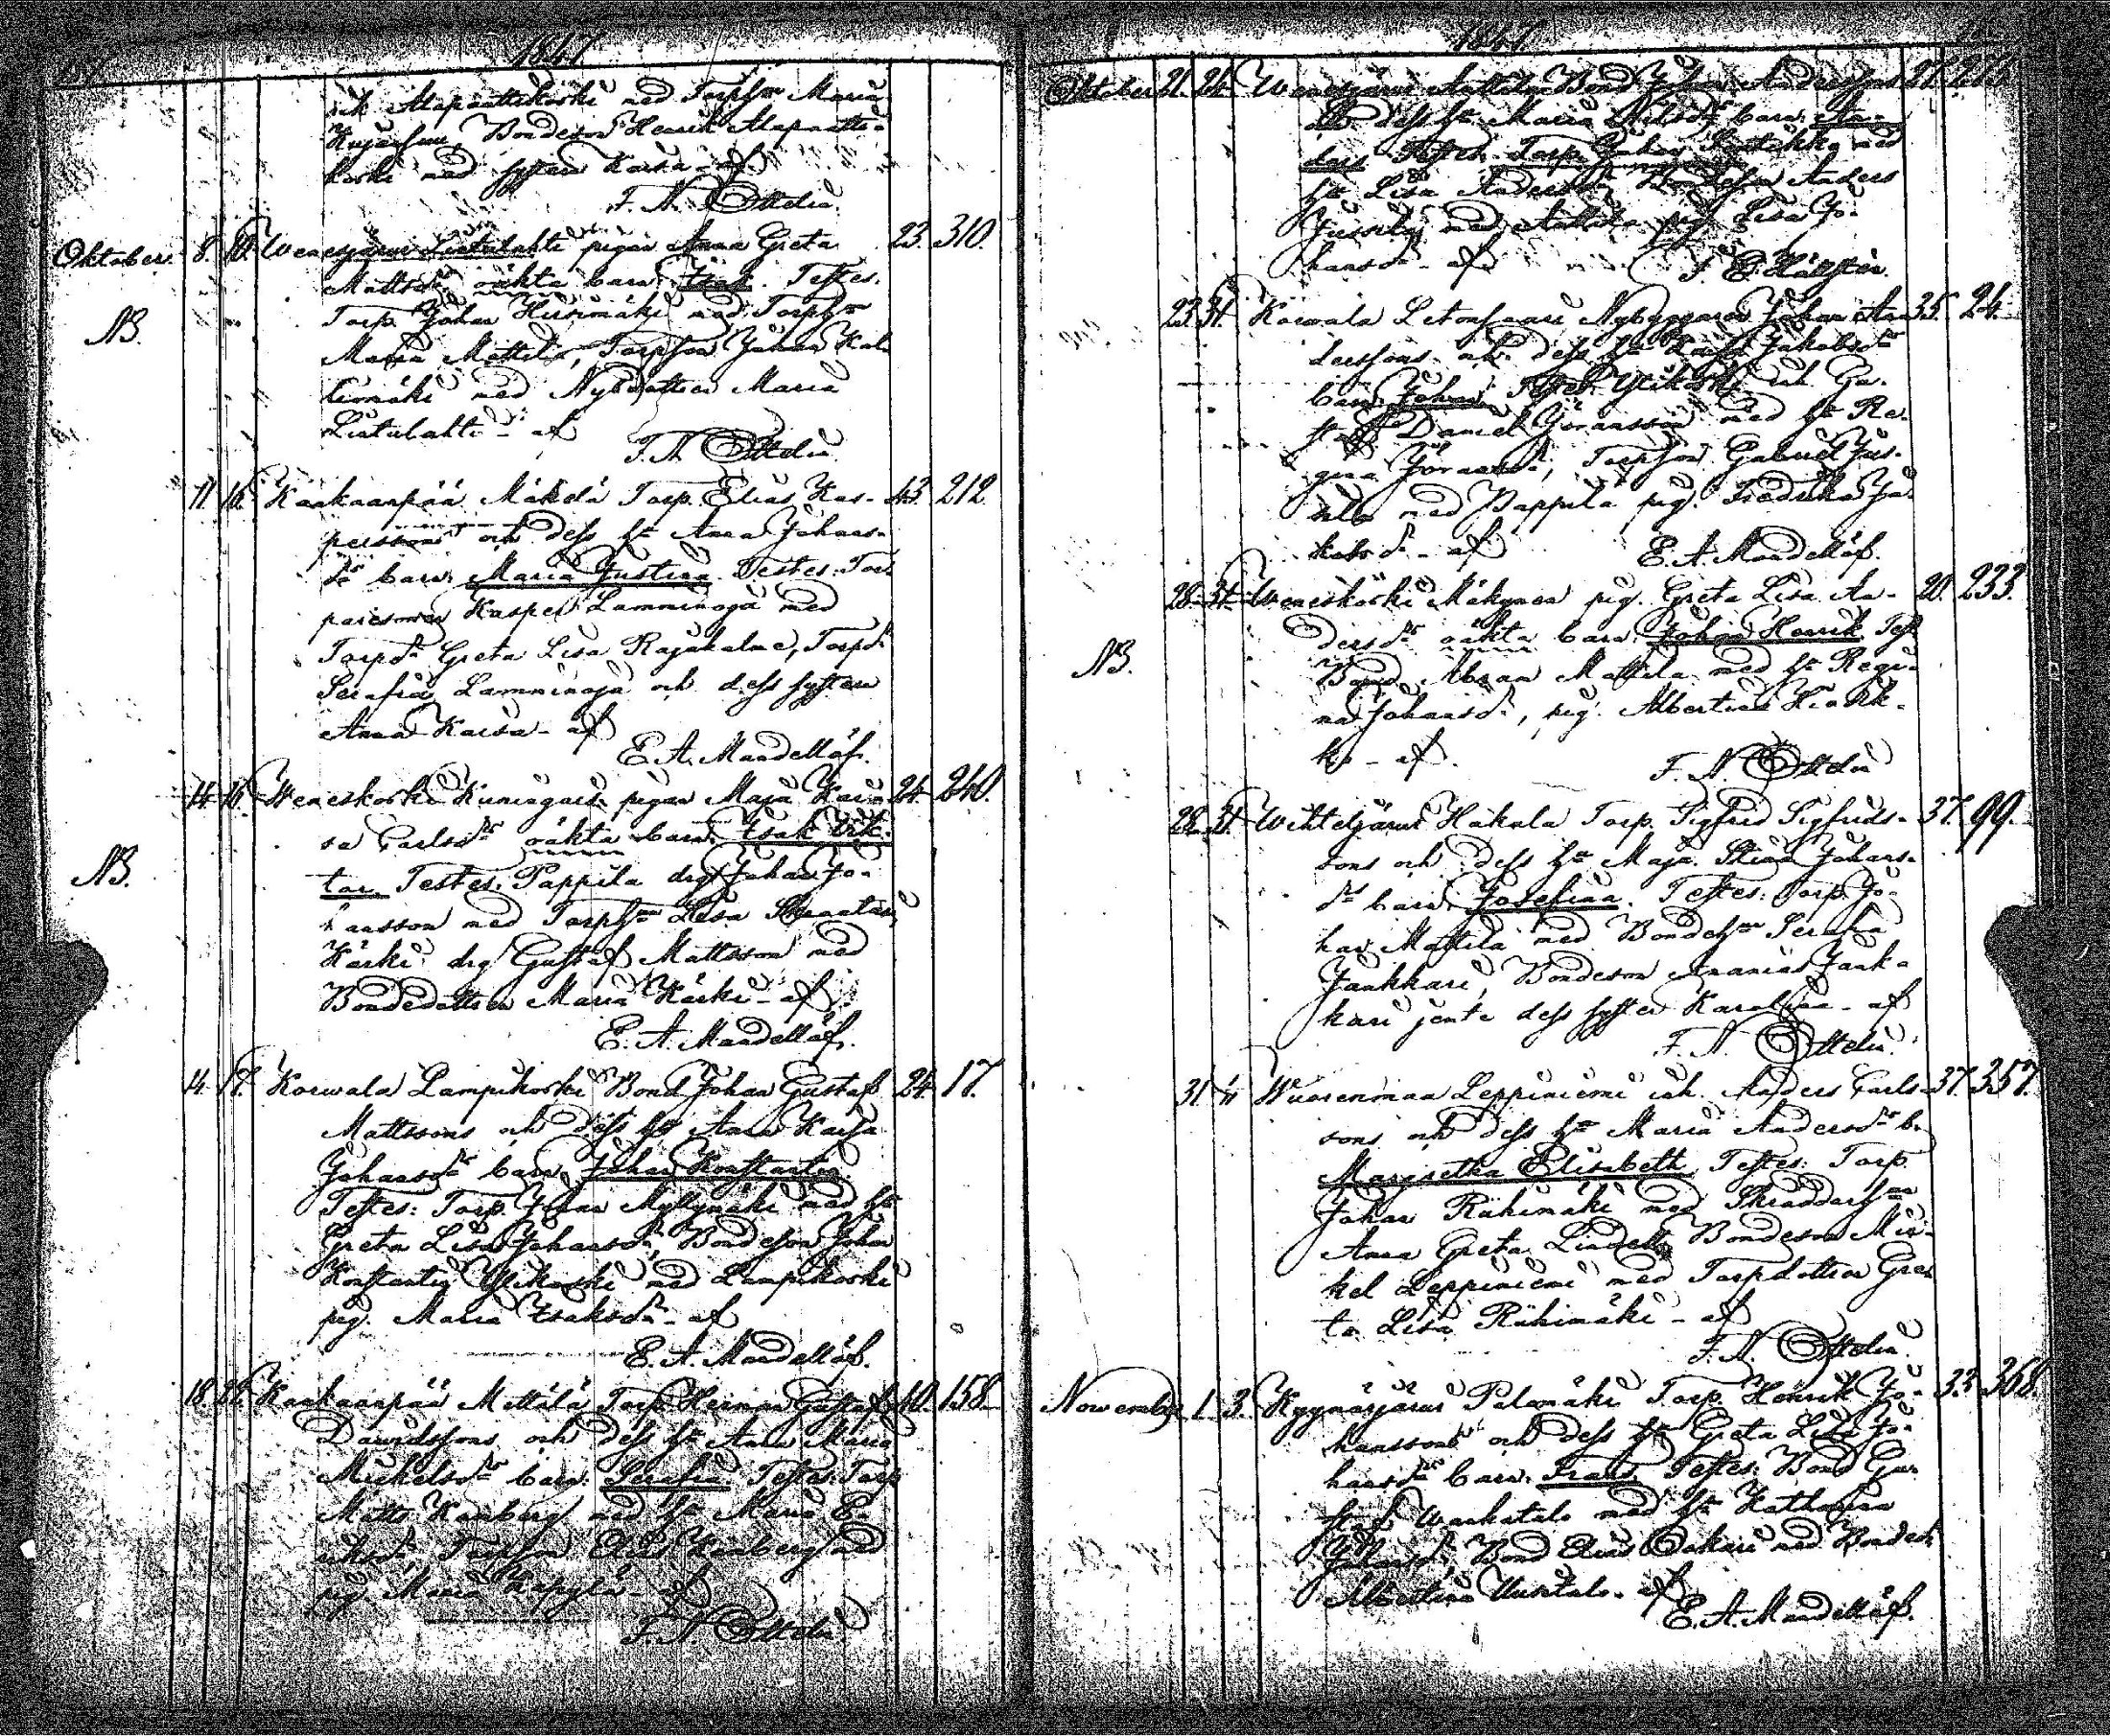 1847
ik Alapaattikoski med Torphn Maria
Kujansuu, Bondeson Henrik Alapaatti-
koski med systern Kaisa - af
F. N. Ottelin
Oktober 8. 10. Wenesjärvi Liutulahti pigan Anna Greta 23. 310.
Mattsdrs oäkta barn Isak. Testes.
NB. Torp. Johan Hiisimäki med Torphn
Maria Mattila, Torpson Johan Kal-
liomäki med Nybdottren Maria
Liutulahti - af
F. N. Ottelin
11. 16. Kankaanpää Mäkelä Torp. Elias Kas- 43. 212.
perssons och dess h. Anna Johans-
drs barn Maria Justina. Testes: Tor-
paresonen Kasper Lamminoja med
Torpdr Greta Lisa Rajakalme, Torpdr
Serafia Lamminoja och dess syster
Anna Kaisa - af
E. A. Mandellöf.
14. 16. Weneskoski Kuningais pigan Maja Kai- 24. 240.
sa Carlsdrs oäkta barn Isak Vik-
NB. tor Testes. Pappila drg Johan Jo-
hansson med Torphn Lisa
Kärki drg Gustaf Mattsson med
Bondedottren Maria Kärki - af
E. A. Mandellöf.
14. 17. Korwala Lampikoski Bond Johan Gustaf 24. 17.
Mattssons och dess h. Anna Kaisa
Johansdrs barn Johan Konstantin
Testes: Torp. Johan Myllymäki med h.
Greta Lisa Johansdr, Bondeson Johan
Konstantin Ylikoski med Lampikoski
pig. Maria Isaksdr - af
E. A. Mandellöf.
18. Kankaanpää Mettälä Torp. Herman Gustaf 40. 158.
Davidssons och dess h. Anna Maria
Mickelsdrs barn: Serafia Testes: Torp.
Matts Kanberg med h. Maria E-
riksdr, Torpson Elias Kanberg med
pig. Maria Käpylä - af
F. N. Ottelin
1847
Oktober 21. 24. Wenesjärvi Anttila Bond Johan Anderssons 27. 276.
och dess h. Maria Nilsdrs barn An-
ders Testes. Torp. Johan med
h. Lisa Andersdr Bondeson Anders
Jussila med Anttila pig Lisa Jo-
hansdr - af
23. 31. Korwala Letonsaari Nybyggaren Johan An- 35. 24.
derssons och dess h. Kaisa Jakobsdrs
barn Johan Testes. Ylikoski inh. Gu-
st. Daniel Göransson med h. Re-
gina Göransdr, Torpson Gabriel Jus-
sila med Pappila pig. Fredrika Ja-
kobsdr - af
E. A. Mandellöf.
28. 31. Weneskoski Mäkynen pig. Greta Lisa An- 20. 233.
dersdrs oäkta barn Johan Henrik Test
NB. Bond Abram Mattila med h. Regi-
na Johansdr, pig. Albertina Heikk-
kä - af
F. N. Ottelin
28. 31. Wihteljärvi Hakala Torp. Sigfrid Sigfrids- 37. 99.
sons och dess h. Maja Stina Johans-
drs barn Josefina. Testes: Torp. Jo-
han Mattila med Bondehn Serafia
Jankkari, Bondeson Ananias Jank-
kari jemte dess syster Karolina - af
F. N. Ottelin
31. Wuorenmaa Leppiniemi inh. Anders Carls- 37. 357.
sons och dess h. Maria Andersdrs b.
Margretha Elisabeth Testes: Torp.
Johan Riihimäki med Skräddarhn
Anna Greta Lindell, Bondeson Mic-
kel Leppiniemi med Torpdottren Gre-
ta Lisa Riihimäki - af
F. N. Ottelin
November 1. 3. Kyynärjärvi Palomäki Torp. Henrik Jo- 33. 368.
hanssons och dess h. Greta Lisa Jo-
hansdrs barn: Frans Testes: Bond Gu-
staf Warhatalo med h. Katharina
Johansdr, Bond Elias Oakari med Bonded.
Albertina Uusitalo - af
E. A. Mandellöf.